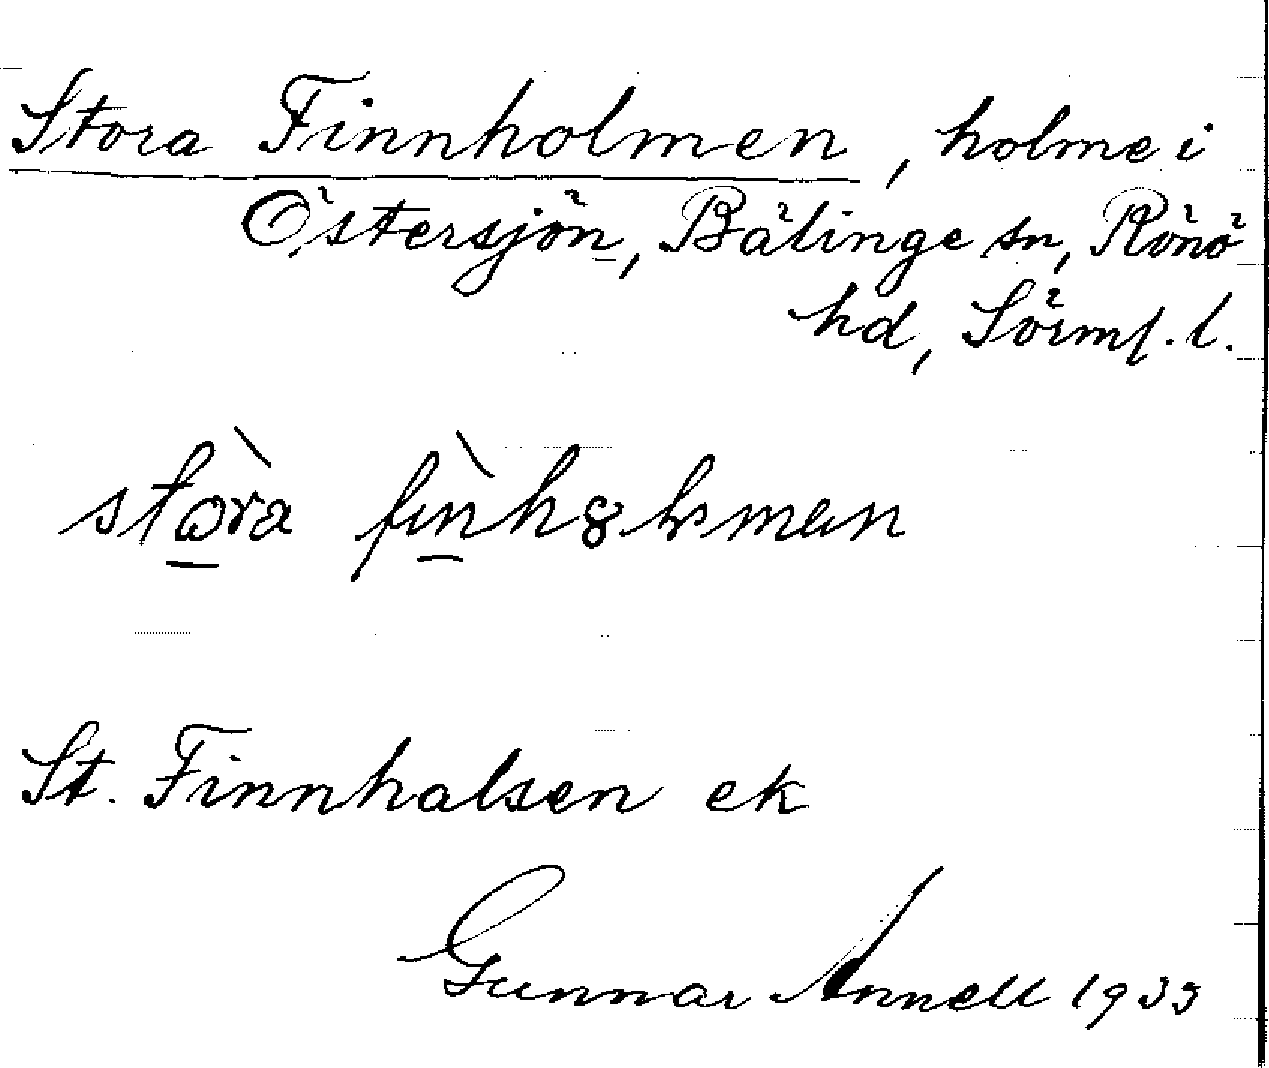 Stora Finnholmen, holme i
Östersjön, Bälinge sn, Rönö
hd, Sörml. l.
stora
St. Finnhalsen ek
Gunnar Annell 1933